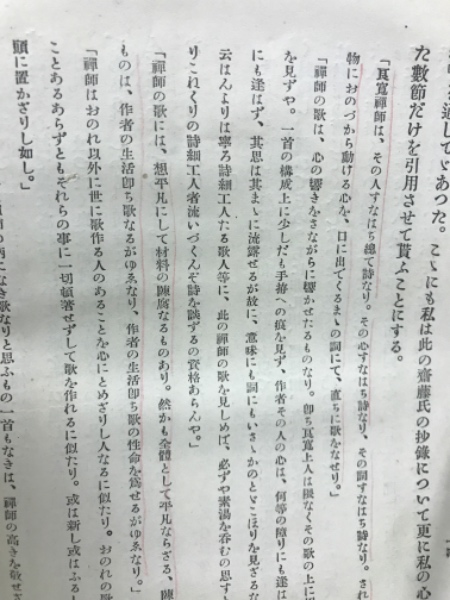 通してゞあつた。こゝにも私は此の齋藤氏の抄錄について更に私の心
た數節だけを引用させて貰ふことにする。
「良寬禪師は、その人すなはち總て詩なり。その心すなはち詩なり、その詞すなはち詩なり。され
物におのづから動ける心を、口に出でくるまゝの詞にて、直ちに歌をなせり。」
「禪師の歌は、心の響きをさながらに響かせたるものなり。卽ち良寬上人は極なくその歌の上に
を見ずや。一首の構成上に少しだも手搏への痕を見ず、作者その人の心は、何等の障りにも逢は
にも逢はず、其思は其まゝに流露せるが故に、意味にも詞にもいさゝかのとゞこほりを見ざるな
云はんよりは寧ろ詩細工人たる歌人等に、此の禪師の歌を見しめば、必ずや素湯を呑むの思す
りこれくりの詩細工人者流いづくんぞ詩を談ずるの資格あらんや。」
「禪師の歌には、想平凡にして材料の陳腐なるものあり。然かも全體として平凡ならざる、陳
ものは、作者の生活卽ち歌なるがゆゑなり、作者の生活卽ち歌の性命を爲せるがゆゑなり。」
「禪師はおのれ以外に世に歌作る人のあることを心にとめざりし人なるに似たり。おのれの歌
ことあるあらずともそれらの事に一切頓著せずして歌を作れるに似たり。或は新し或はふる
頭に置かざりし如し。」
なき歌なりと思ふもの一首もなきは、禪師の高きを敬せ